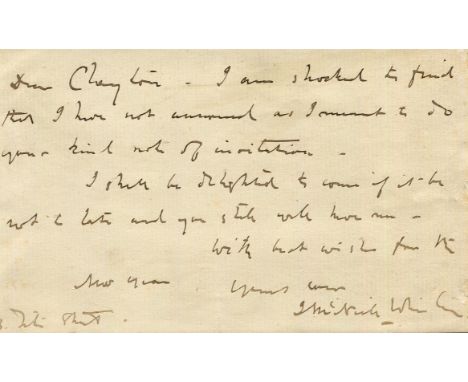 Dear Clayton - I am shocked to find
that I have not answered as I meant to do
your kind note of invitation -
I shall be delighted to come if it be
not too late and you still will have me -
With best wishes for the
New Year Yours ever
J McNeill Whistler
Street.